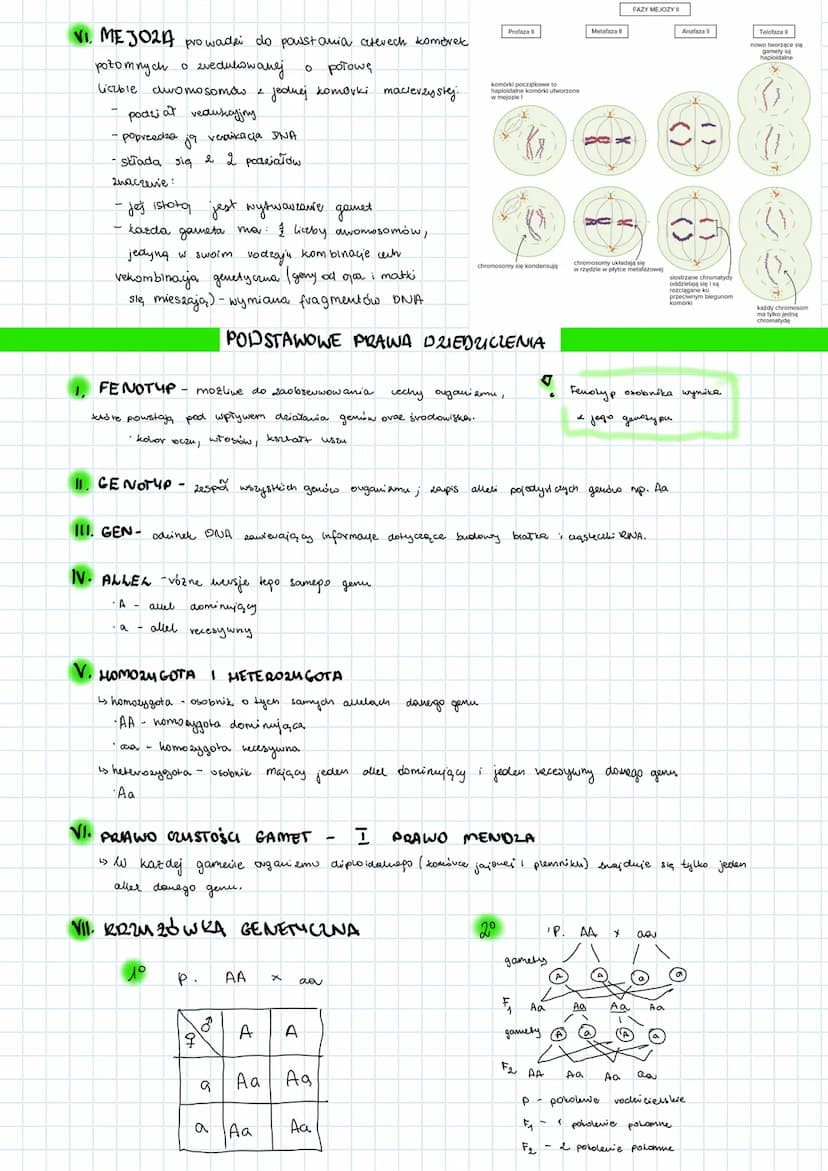 VI. MEJOZA prowadzi do powstania czterech komórek
potomnych o zredukowanej o połowę
liczbie chromosomów z jednej komórki macierzystej.
- podział redukcyjny
- poprzedza ją replikacja DNA
- składa się z 2 podziałów
znaczenie:
- jej istotą jest wytwarzanie gamet
- każda gameta ma: ½ liczby chromosomów,
jedyną w swoim rodzaju kombinację cech
rekombinacja genetyczna (geny od ojca i matki
się mieszają) - wymiana fragmentów DNA
FAZY MEJOZY II
Profaza II
Metafaza II
Anafaza II
Telofaza II
nowo tworzące się
gamety są
haploidalne
komórki początkowe to
haploidalne komórki utworzone
w mejozie I
chromosomy się kondensują
chromosomy układają się
w rzędzie w płytce metafazowej
siostrzane chromatydy
oddzielają się i są
rozciągane ku
przeciwnym biegunom
komórki
każdy chromosom
ma tylko jedną
chromatydę
PODSTAWOWE PRAWA DZIEDZICZENIA
I. FENOTYP - możliwe do zaobserwowania cechy organizmu,
które powstają pod wpływem działania genów oraz środowiska.
· kolor oczu, włosów, kształt uszu
! Fenotyp osobnika wynika
z jego genotypu
II. GENOTYP - zespół wszystkich genów organizmu; zapis alleli pojedynczych genów np. Aa
III. GEN - odcinek DNA zawierający informacje dotyczące budowy białka i cząsteczki RNA.
IV. ALLEL - różne wersje tego samego genu
· A - allel dominujący
· a - allel recesywny
V. HOMOZYGOTA I HETEROZYGOTA
↳ homozygota - osobnik o tych samych allelach danego genu
· AA - homozygota dominująca
· aa - homozygota recesywna
↳ heterozygota - osobnik mający jeden allel dominujący i jeden recesywny danego genu
· Aa
VI. PRAWO CZYSTOŚCI GAMET - I PRAWO MENDLA
↳ W każdej gamecie organizmu diploidalnego (komórce jajowej i plemniku) znajduje się tylko jeden
allel danego genu.
VII. KRZYŻÓWKA GENETYCZNA
1°
P. AA × aa
♀ ♂ A A
a Aa Aa
a Aa Aa
2°
P. AA × aa
gamety
A A a a
F₁ Aa Aa Aa Aa
gamety A a A a
F₂ AA Aa Aa aa
P - pokolenie rodzicielskie
F₁ - 1 pokolenie potomne
F₂ - 2 pokolenie potomne